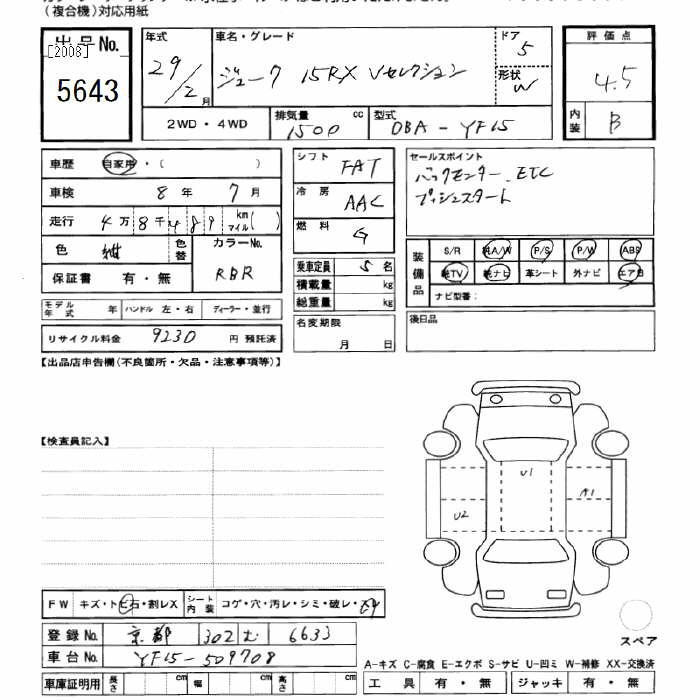 (複合機)対応用紙
出品No.
[2008]
5643
年式
29/2月
車名・グレード
ジューク 15RX Vセレクション
ドア
5
形状
W
評価点
4.5
内装
B
2WD・4WD
排気量 cc
1500
型式
DBA-YF15
車歴 自家用・( )
車検 8年 7月
走行 4万8千489 km マイル( )
色 紺
色替
カラーNo.
RBR
保証書 有・無
モデル年式 年 ハンドル 左・右 ディーラー・並行
リサイクル料金 9230 円 預託済
シフト FAT
冷房 AAC
燃料 G
乗車定員 5名
積載量 kg
総重量 kg
名変期限
月 日
セールスポイント
バックモニター、ETC
プッシュスタート
装備品
S/R 純A/W P/S P/W ABS
純TV 純ナビ 革シート 外ナビ エアB
ナビ型番:
後日品
【出品店申告欄(不良箇所・欠品・注意事項等)】
【検査員記入】
U1
A1
U2
FW キズ・トビ石・割レX シート内装 コゲ・穴・汚レ・シミ・破レ・
登録No. 京都 302 む 6633
車台No. YF15-509708
スペア
A-キズ C-腐食 E-エクボ S-サビ U-凹ミ W-補修 XX-交換済
車庫証明用 長さ cm 幅 cm 高さ cm
工具 有・無 ジャッキ 有・無